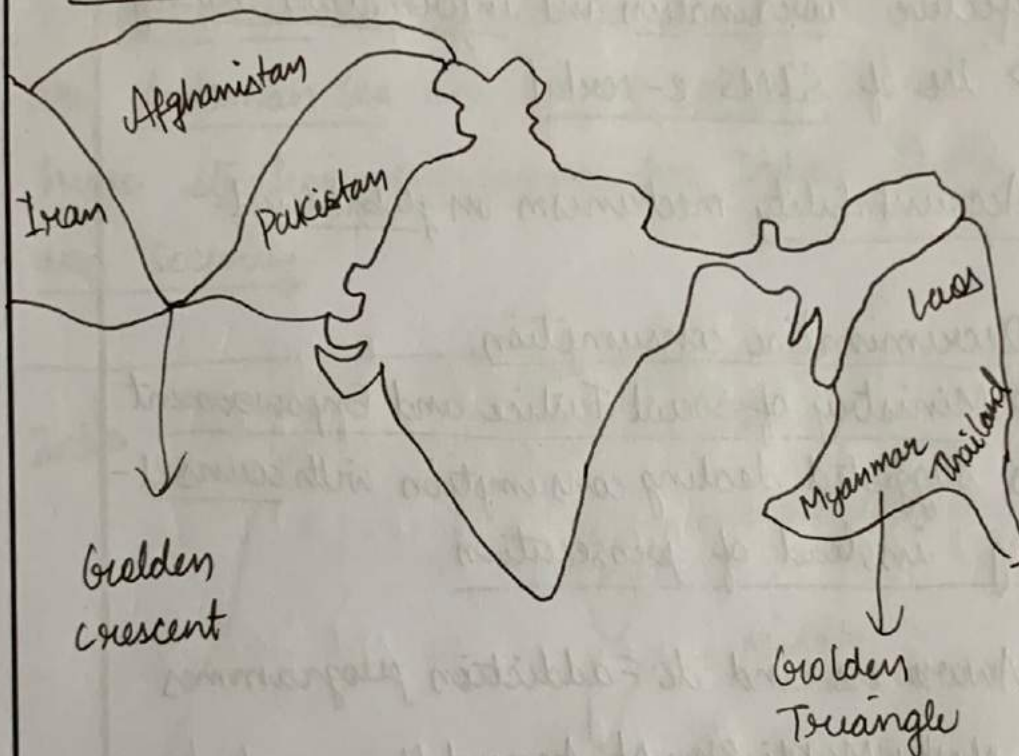 Afghanistan
Iran
Pakistan
Laos
Myanmar
Thailand
Golden
Crescent
Golden
Triangle